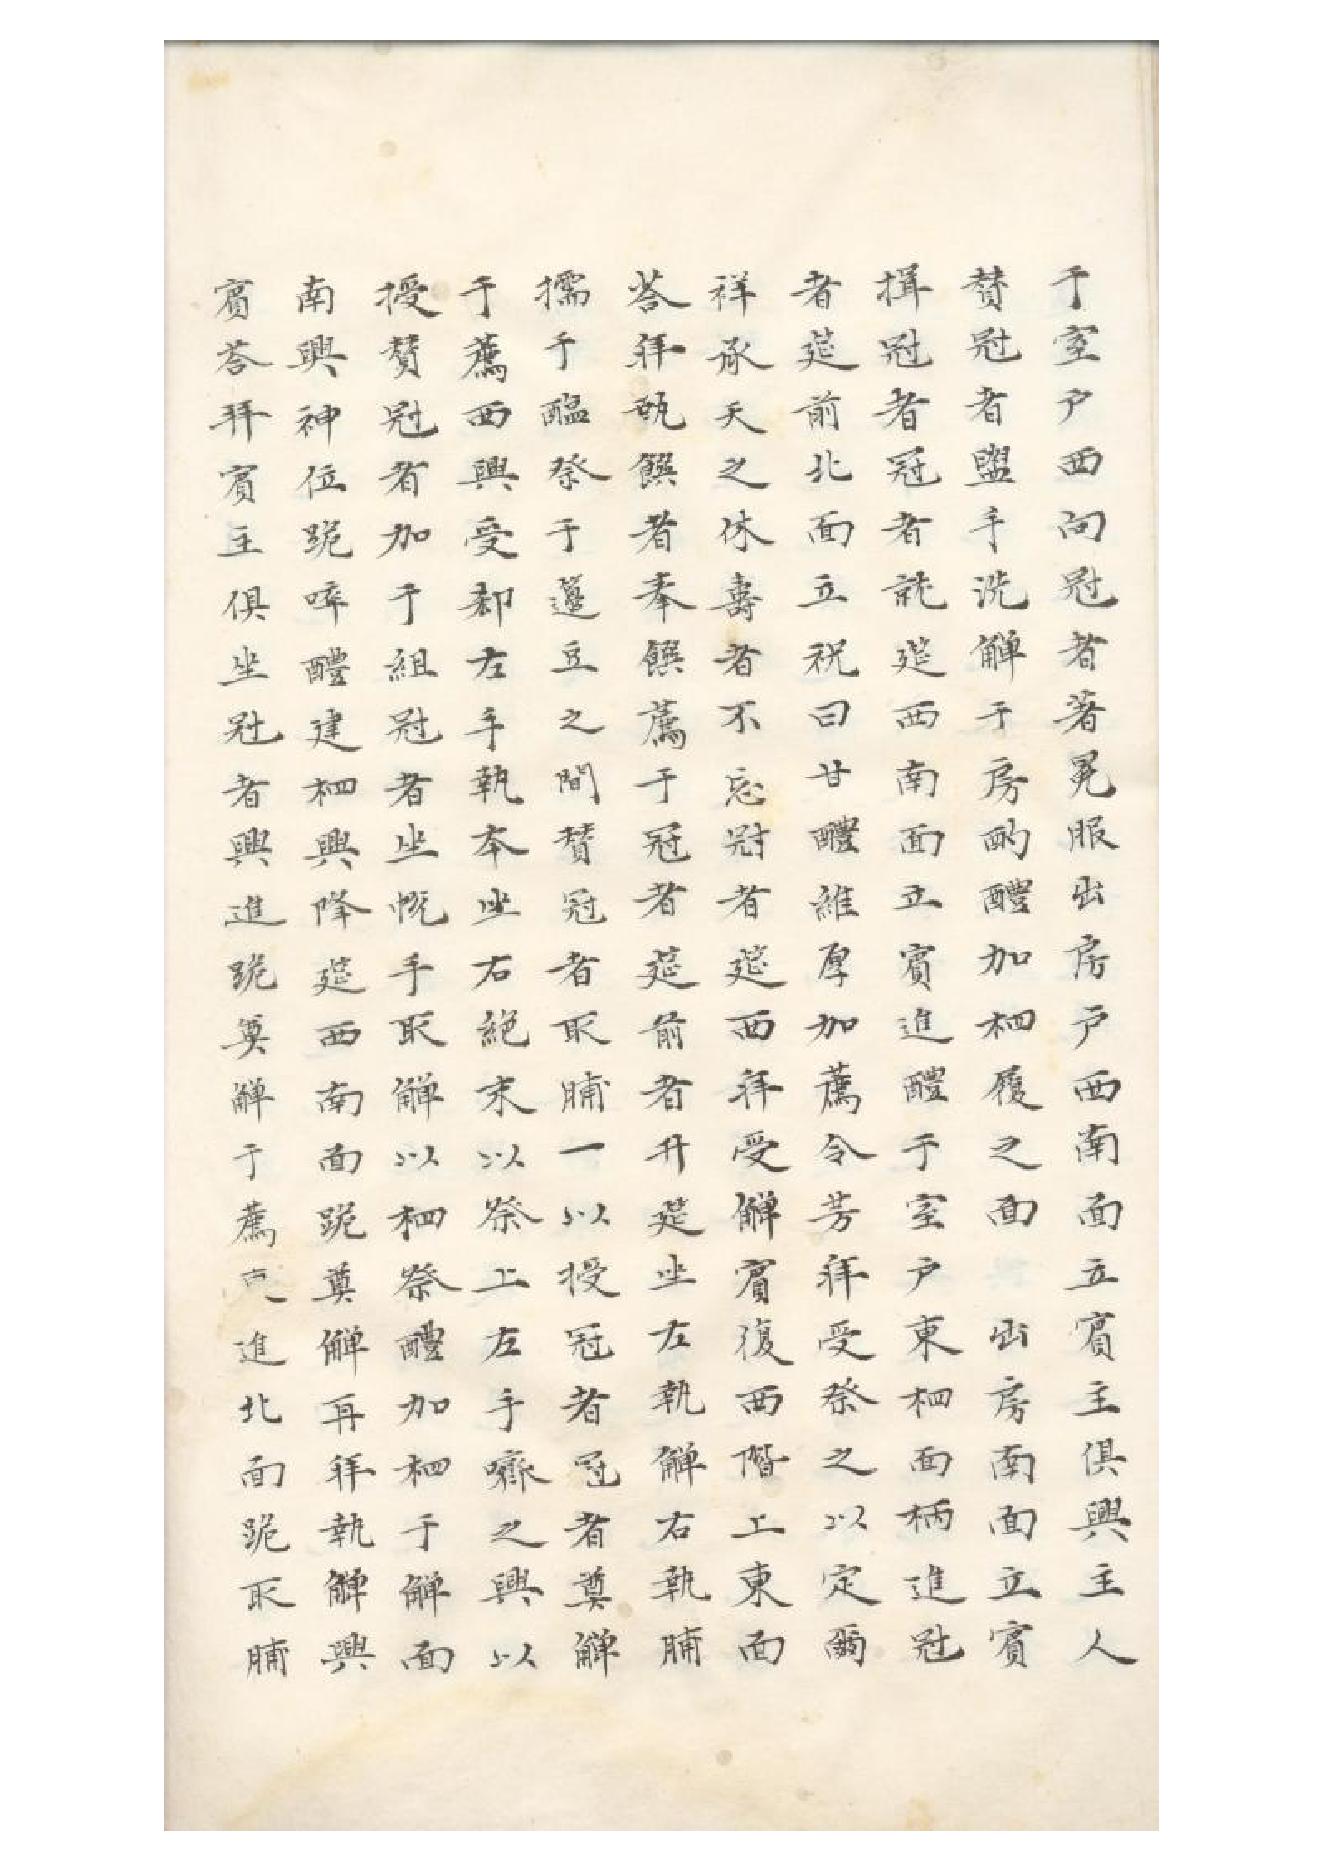 于室户西向冠者著冕服出房戸西南面立賓主俱興主人
賛冠者盥手洗觶于房酌醴加柶覆之面 出房南面立賓
揖冠者冠者就筵西南面立賓進醴于室户東柶面柄進冠
者筵前北面立祝曰甘醴維厚加薦令芳拜受祭之以定爾
祥承天之休壽考不忘冠者筵西拜受觶賓復西階上東面
荅拜執饌者奉饌薦于冠者筵前者升筵坐左執觶右執脯
擩于醢祭于籩豆之間賛冠者取脯一以授冠者冠者奠觶
于薦西興受郄左手執夲坐右絶末以祭上左手嚌之興以
授賛冠者加于組冠者坐帨手取觶以柶祭醴加柶于觶面
南興神位跪啐醴建柶興降筵西南面跪奠觶再拜執觶興
賓荅拜賓主俱坐冠者興進跪奠觶于薦 進北面跪取脯